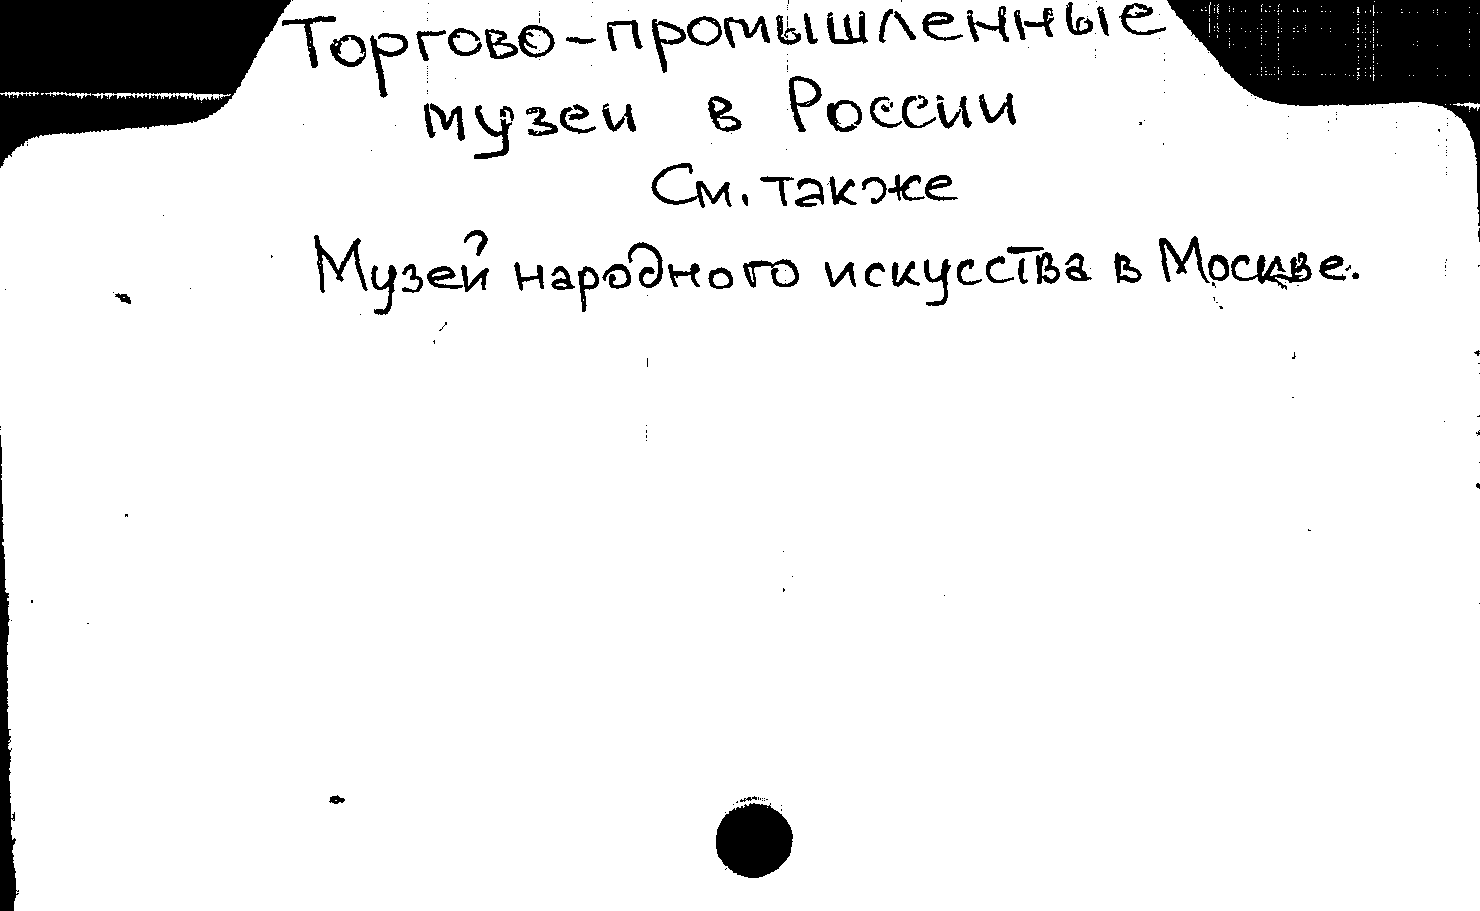 Торгово-промышленные
музеи в России
См. также
Музей народного искусства в Москве.